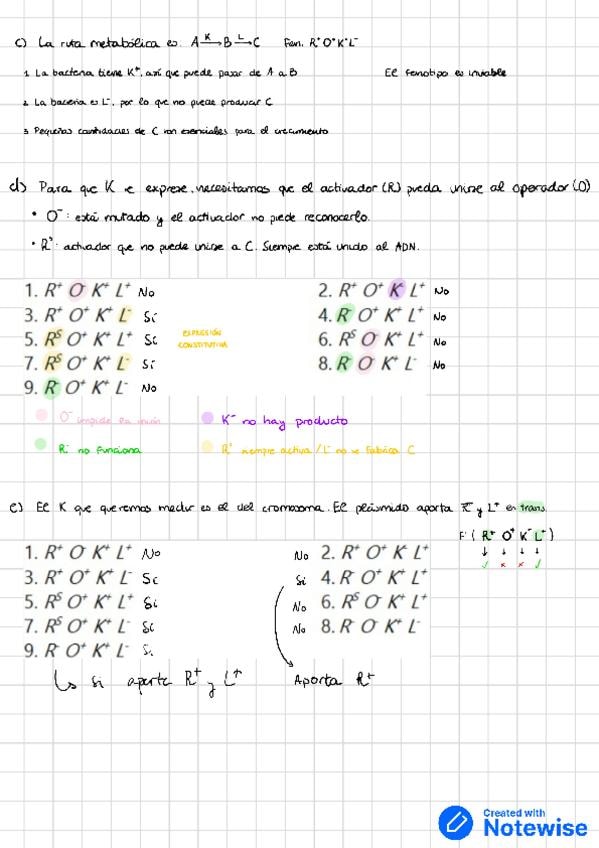 c) La ruta metabólica es: A –K→ B –L→ C Fen. R⁺ O⁺ K⁺ L⁻
1. La bacteria tiene K⁺, así que puede pasar de A a B El fenotipo es inviable
2. La bacteria es L⁻, por lo que no puede producir C
3. Pequeñas cantidades de C son esenciales para el crecimiento
d) Para que K se exprese, necesitamos que el activador (R) pueda unirse al operador (O)
• O⁻: está mutado y el activador no puede reconocerlo.
• Rˢ: activador que no puede unirse a C. Siempre está unido al ADN.
1. R⁺ O⁻ K⁺ L⁺ No 2. R⁺ O⁺ K⁻ L⁺ No
3. R⁺ O⁺ K⁺ L⁻ Sí 4. R⁻ O⁺ K⁺ L⁺ No
5. Rˢ O⁺ K⁺ L⁺ Sí EXPRESIÓN CONSTITUTIVA 6. Rˢ O⁻ K⁺ L⁺ No
7. Rˢ O⁺ K⁺ L⁻ Sí 8. R⁻ O⁻ K⁺ L⁻ No
9. R⁻ O⁺ K⁺ L⁻ No
O⁻ impide la unión K⁻ no hay producto
R⁻ no funciona Rˢ siempre activa / L⁻ no se fabrica C
e) El K que queremos medir es el del cromosoma. El plásmido aporta R⁺ y L⁺ en trans.
F' ( R⁺ O⁺ K⁻ L⁺ )
↓ ↓ ↓ ↓
✓ × × ✓
1. R⁺ O⁻ K⁺ L⁺ No No 2. R⁺ O⁺ K⁻ L⁺
3. R⁺ O⁺ K⁺ L⁻ Sí Sí 4. R⁻ O⁺ K⁺ L⁺
5. Rˢ O⁺ K⁺ L⁺ Sí No 6. Rˢ O⁻ K⁺ L⁺
7. Rˢ O⁺ K⁺ L⁻ Sí No 8. R⁻ O⁻ K⁺ L⁻
9. R⁻ O⁺ K⁺ L⁻ Sí
↳ si aporta R⁺ y L⁺ Aporta R⁺
Created with
Notewise